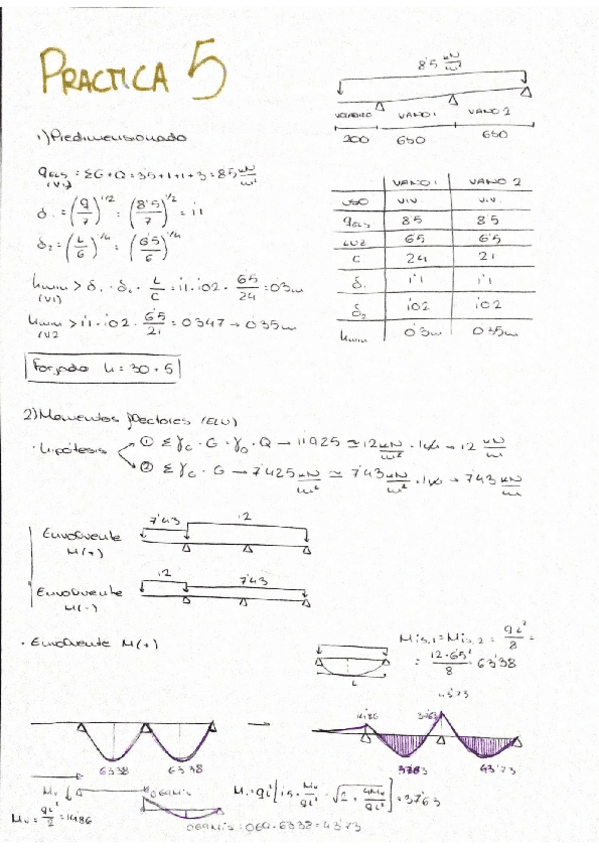 PRACTICA 5
8'5 kN/m²
VOLADIZO VANO 1 VANO 2
200 650 650
1) Predimensionado
q ELS (V1) = ΣG+Q = 3'5+1+1+3 = 8'5 kN/m²
δ₁ = (q/7)^1/2 = (8'5/7)^1/2 = 1'1
δ₂ = (L/6)^1/4 = (6'5/6)^1/4
hmin (V1) > δ₁ · δ₂ · L/C = 1'1 · 1'02 · 6'5/24 = 0'3m
hmin (V2) > 1'1 · 1'02 · 6'5/21 = 0'347 → 0'35m
Forjado h = 30+5
VANO 1 VANO 2
USO VIV. VIV.
qELS 8'5 8'5
LUZ 6'5 6'5
C 24 21
δ₁ 1'1 1'1
δ₂ 1'02 1'02
hmin 0'3m 0'35m
2) Momentos flectores (ELU)
· Hipótesis
① Σ γG · G · γQ · Q → 11'925 ≃ 12 kN/m² · 1m → 12 kN/m
② Σ γG · G → 7'425 kN/m² ≃ 7'43 kN/m² · 1m → 7'43 kN/m
Envolvente M(+)
7'43 12
Envolvente M(-)
12 7'43
· Envolvente M(+)
L
Mis,1 = Mis,2 = qL²/8 =
= 12·6'5²/8 = 63'38
63'38 63'38
14'86 37'63 43'73
43'73
Mv 0'69Mis
Mv = qL²/2 = 14'86
0'69Mis = 0'69 · 63'38 = 43'73
= 37'63